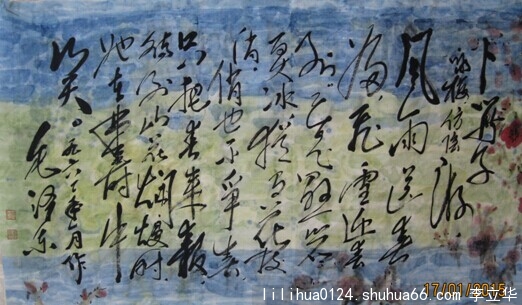 卜算子
咏梅仿陆游
风雨送春
归飞雪迎春
到已是悬岩
百丈冰犹有花枝
俏俏也不争春
只把春来报
待到山花烂漫时
她在丛中
笑
毛泽东
17/01/2015
lilihua0124.shuhua66.com @李立华